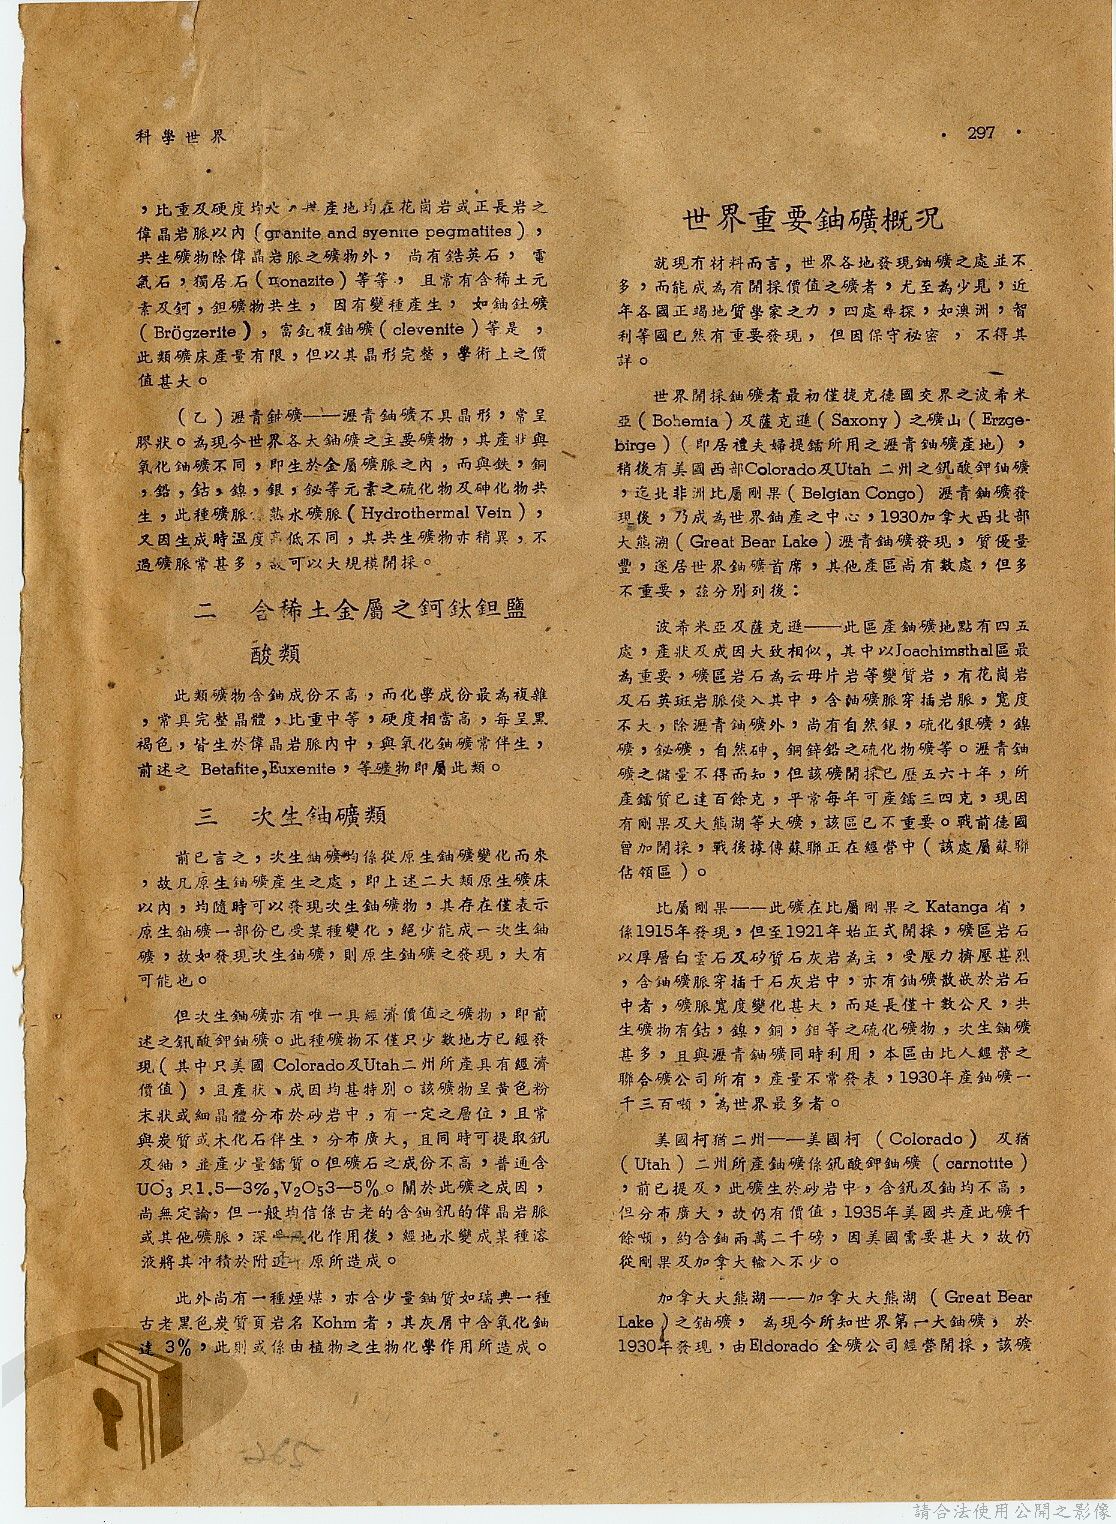 科學世界
· 297 ·
，比重及硬度均大，其產地均在花崗岩或正長岩之
偉晶岩脈以內（granite and syenite pegmatites），
共生礦物除偉晶岩脈之礦物外，尚有鋯英石，電
氣石，獨居石（monazite）等等，且常有含稀土元
素及鈳，鉭礦物共生，因有變種產生，如鈾釷礦
（Brögzerite），富釔複鈾礦（clevenite）等是，
此類礦床產量有限，但以其晶形完整，學術上之價
值甚大。
（乙）瀝青鈾礦——瀝青鈾礦不具晶形，常呈
膠狀。為現今世界各大鈾礦之主要礦物，其產狀與
氧化鈾礦不同，即生於金屬礦脈之內，而與鉄，銅
，鉛，鈷，鎳，銀，鉍等元素之硫化物及砷化物共
生，此種礦脈 熱水礦脈（Hydrothermal Vein），
又因生成時溫度高低不同，其共生礦物亦稍異，不
過礦脈常甚多，故可以大規模開採。
二　含稀土金屬之鈳鈦鉭鹽
酸類
此類礦物含鈾成份不高，而化學成份最為複雜
，常具完整晶體，比重中等，硬度相當高，每呈黑
褐色，皆生於偉晶岩脈內中，與氧化鈾礦常伴生，
前述之 Betafite,Euxenite，等礦物即屬此類。
三　次生鈾礦類
前已言之，次生鈾礦均係從原生鈾礦變化而來
，故凡原生鈾礦產生之處，即上述二大類原生礦床
以內，均隨時可以發現次生鈾礦物，其存在僅表示
原生鈾礦一部份已受某種變化，絕少能成一次生鈾
礦，故如發現次生鈾礦，則原生鈾礦之發現，大有
可能也。
但次生鈾礦亦有唯一具經濟價值之礦物，即前
述之釩酸鉀鈾礦。此種礦物不僅只少數地方已經發
現（其中只美國 Colorado及Utah二州所產具有經濟
價值），且產狀、成因均甚特別。該礦物呈黃色粉
末狀或細晶體分布於砂岩中，有一定之層位，且常
與炭質或木化石伴生，分布廣大，且同時可提取釩
及鈾，並產少量鐳質。但礦石之成份不高，普通含
UO3 只1.5—3%,V2O53—5%。關於此礦之成因，
尚無定論，但一般均信係古老的含鈾釩的偉晶岩脈
或其他礦脈，深 化作用後，經地水變成某種溶
液將其沖積於附近 原所造成。
此外尚有一種煙煤，亦含少量鈾質如瑞典一種
古老黑色炭質頁岩名 Kohm 者，其灰屑中含氧化鈾
達 3%，此則或係由植物之生物化學作用所造成。
世界重要鈾礦概況
就現有材料而言，世界各地發現鈾礦之處並不
多，而能成為有開採價值之礦者，尤至為少見，近
年各國正竭地質學家之力，四處尋探，如澳洲，智
利等國已然有重要發現，但因保守祕密，不得其
詳。
世界開採鈾礦者最初僅捷克德國交界之波希米
亞（Bohemia）及薩克遜（Saxony）之礦山（Erzge-
birge）（即居禮夫婦提鐳所用之瀝青鈾礦產地），
稍後有美國西部Colorado及Utah 二州之釩酸鉀鈾礦
，迄北非洲比屬剛果（Belgian Congo）瀝青鈾礦發
現後，乃成為世界鈾產之中心，1930加拿大西北部
大熊湖（Great Bear Lake）瀝青鈾礦發現，質優量
豐，遂居世界鈾礦首席，其他產區尚有數處，但多
不重要，茲分別列後：
波希米亞及薩克遜——此區產鈾礦地點有四五
處，產狀及成因大致相似，其中以Joachimsthal區最
為重要，礦區岩石為云母片岩等變質岩，有花崗岩
及石英斑岩脈侵入其中，含鈾礦脈穿插岩脈，寬度
不大，除瀝青鈾礦外，尚有自然銀，硫化銀礦，鎳
礦，鉍礦，自然砷，銅鋅鉛之硫化物礦等。瀝青鈾
礦之儲量不得而知，但該礦開採已歷五六十年，所
產鐳質已達百餘克，平常每年可產鐳三四克，現因
有剛果及大熊湖等大礦，該區已不重要。戰前德國
曾加開採，戰後據傳蘇聯正在經營中（該處屬蘇聯
佔領區）。
比屬剛果——此礦在比屬剛果之 Katanga 省，
係1915年發現，但至1921年始正式開採，礦區岩石
以厚層白雲石及矽質石灰岩為主，受壓力擠壓甚烈
，含鈾礦脈穿插于石灰岩中，亦有鈾礦散嵌於岩石
中者，礦脈寬度變化甚大，而延長僅十數公尺，共
生礦物有鈷，鎳，銅，鉬等之硫化礦物，次生鈾礦
甚多，且與瀝青鈾礦同時利用，本區由比人經營之
聯合礦公司所有，產量不常發表，1930年產鈾礦一
千三百噸，為世界最多者。
美國柯猶二州——美國柯（Colorado）及猶
（Utah）二州所產鈾礦係釩酸鉀鈾礦（carnotite）
，前已提及，此礦生於砂岩中，含釩及鈾均不高，
但分布廣大，故仍有價值，1935年美國共產此礦千
餘噸，約含鈾兩萬二千磅，因美國需要甚大，故仍
從剛果及加拿大輸入不少。
加拿大大熊湖——加拿大大熊湖（Great Bear
Lake）之鈾礦，為現今所知世界第一大鈾礦，於
1930年發現，由Eldorado 金礦公司經營開採，該礦
請合法使用公開之影像